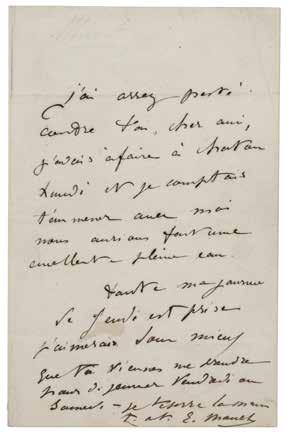 j'ai assez pesté
contre toi, cher ami,
j'avais à faire à Chatou
Lundi et je comptais
t'emmener avec moi
nous aurions fait une
excellente pleine eau.
Toute ma journée
de Jeudi est prise
j'aimerais donc mieux
que tu viennes me prendre
pour déjeuner Vendredi ou
Samedi - je te serre la main
t. à t. E. Manet